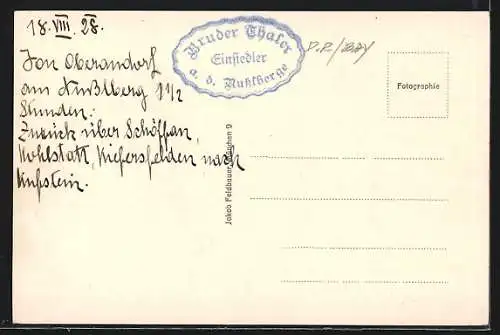 18. VIII. 28.
Von Oberaudorf
am Nußlberg 1 1/2
Stunden.
Zurück über Schöffau,
Kohlstatt, Kiefersfelden nach
Kufstein.
Bruder Thaler
Einsiedler
a. d. Nußlberge
D.R./BAY
Fotographie
Jakob Feldbaum, München 9